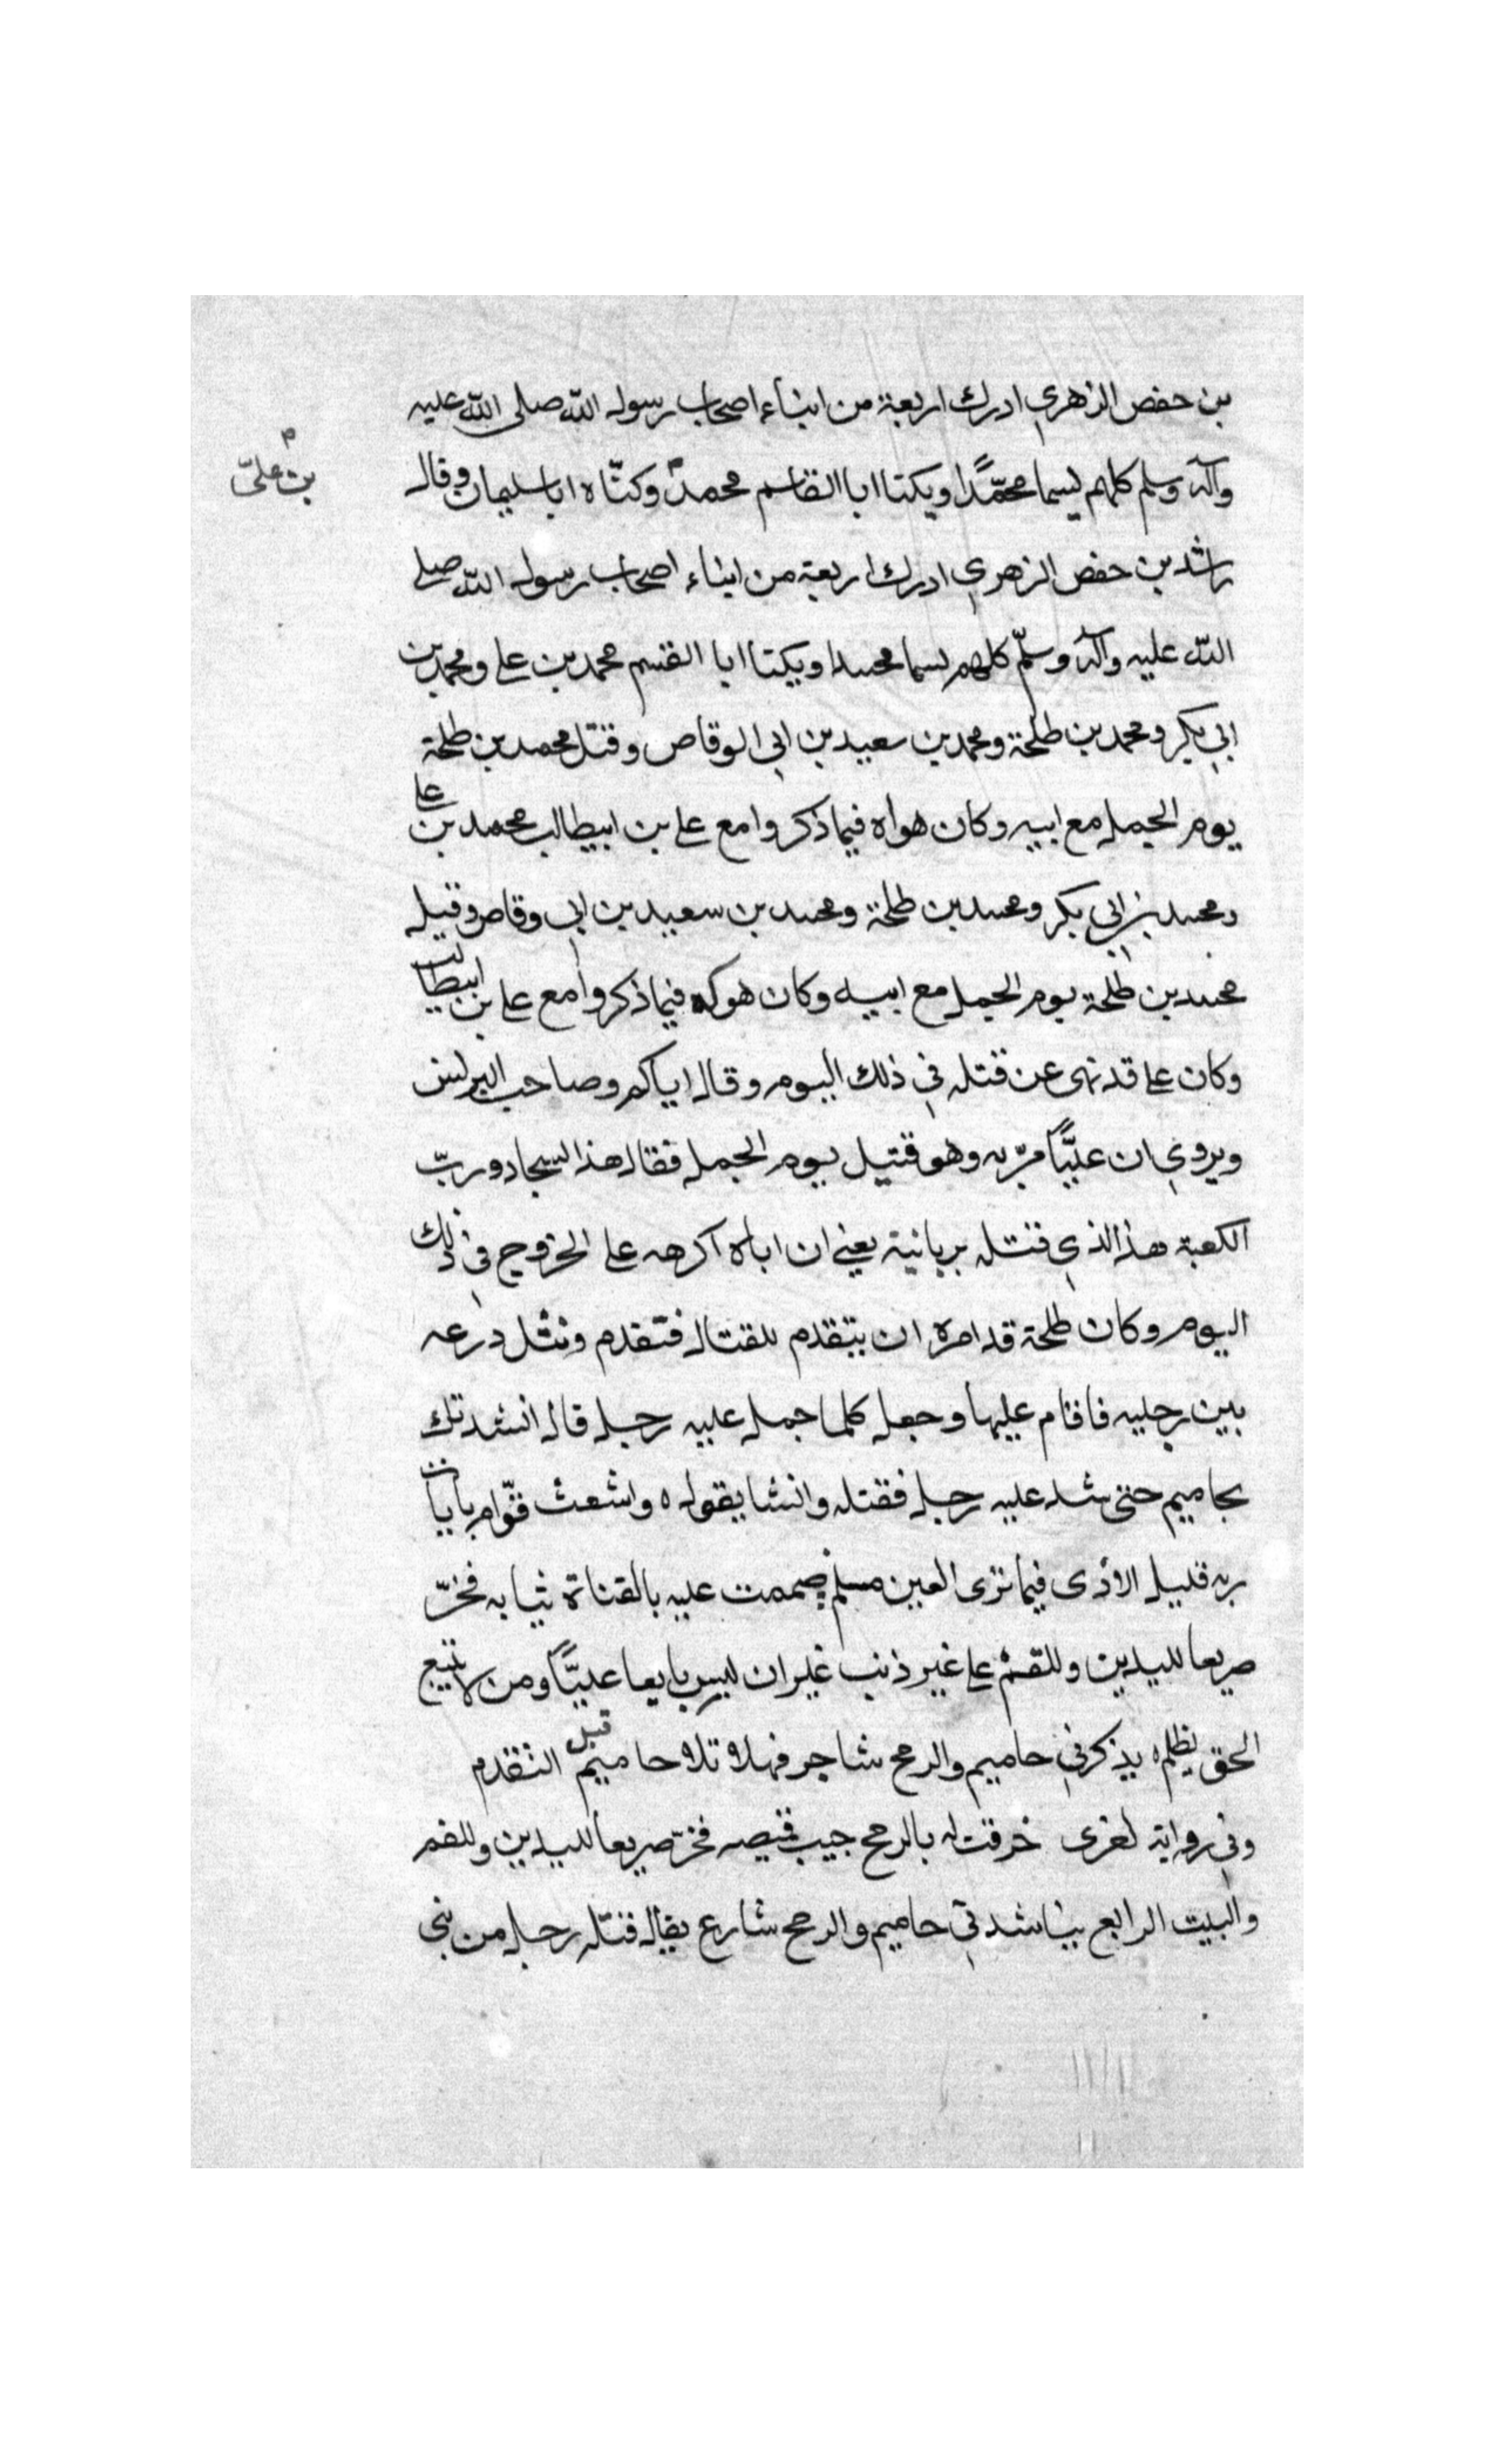 بن حفص الزهري ادرك اربعة من ابناء اصحاب رسول الله صلى الله عليه
وآله وسلم كلهم يسما محمّدًا ويكنا ابا القاسم محمد وكنّاه ابا سليمان وقال
بن علىّ
راشد بن حفص الزهري ادرك اربعة من ابناء اصحاب رسول الله صلى
الله عليه وآله وسلّم كلهم يسما محمدا ويكنا ابا القسم محمد بن على ومحمد بن
ابي بكر ومحمد بن طلحة ومحمد بن سعيد بن ابي الوقاص وقتل محمد بن طلحة
يوم الجمل مع ابيه وكان هواه فيما ذكروا مع على بن ابيطالب محمد بن على
ومحمد بن ابي بكر ومحمد بن طلحة ومحمد بن سعيد بن ابي وقاص وقيل
محمد بن طلحة يوم الجمل مع ابيه وكان فيما ذكروا مع على بن ابيطالب
وكان على قد نهى عن قتله في ذلك اليوم وقال اياكم وصاحب البرنس
ويروي ان عليًّا مرّ به وهو قتيل يوم الجمل فقال هذا السجاد وربّ
الكعبة هذا الذي قتله بربانية يعني ان اباه اكرهه على الخروج في ذلك
اليوم وكان طلحة قد امره ان يتقدم للقتال فتقدم ونثل درعه
بين رجليه فاقام عليها وجعل كلما حمل عليه رجل قال انشدتك
بحاميم حتى شد عليه رجل فقتله وانشا يقول ه واشعث قوّام بايات
ربه قليل الاذى فيما ترى العين مسلم صممت عليه بالقناة ثيابه فخرّ
صريعا لليدين وللقم على غير ذنب غير ان ليس بايعا عليًّا ومن لا يتبع
الحق يظلم ه يذكرني حاميم والرمح شاجر فهلا تلا حاميم قبل التقدم
وفي رواية اخرى خرقت له بالرمح جيب قميصه فخرّ صريعا لليدين وللفم
والبيت الرابع يناشدني حاميم والرمح شارع يقال قتله رجل من بني